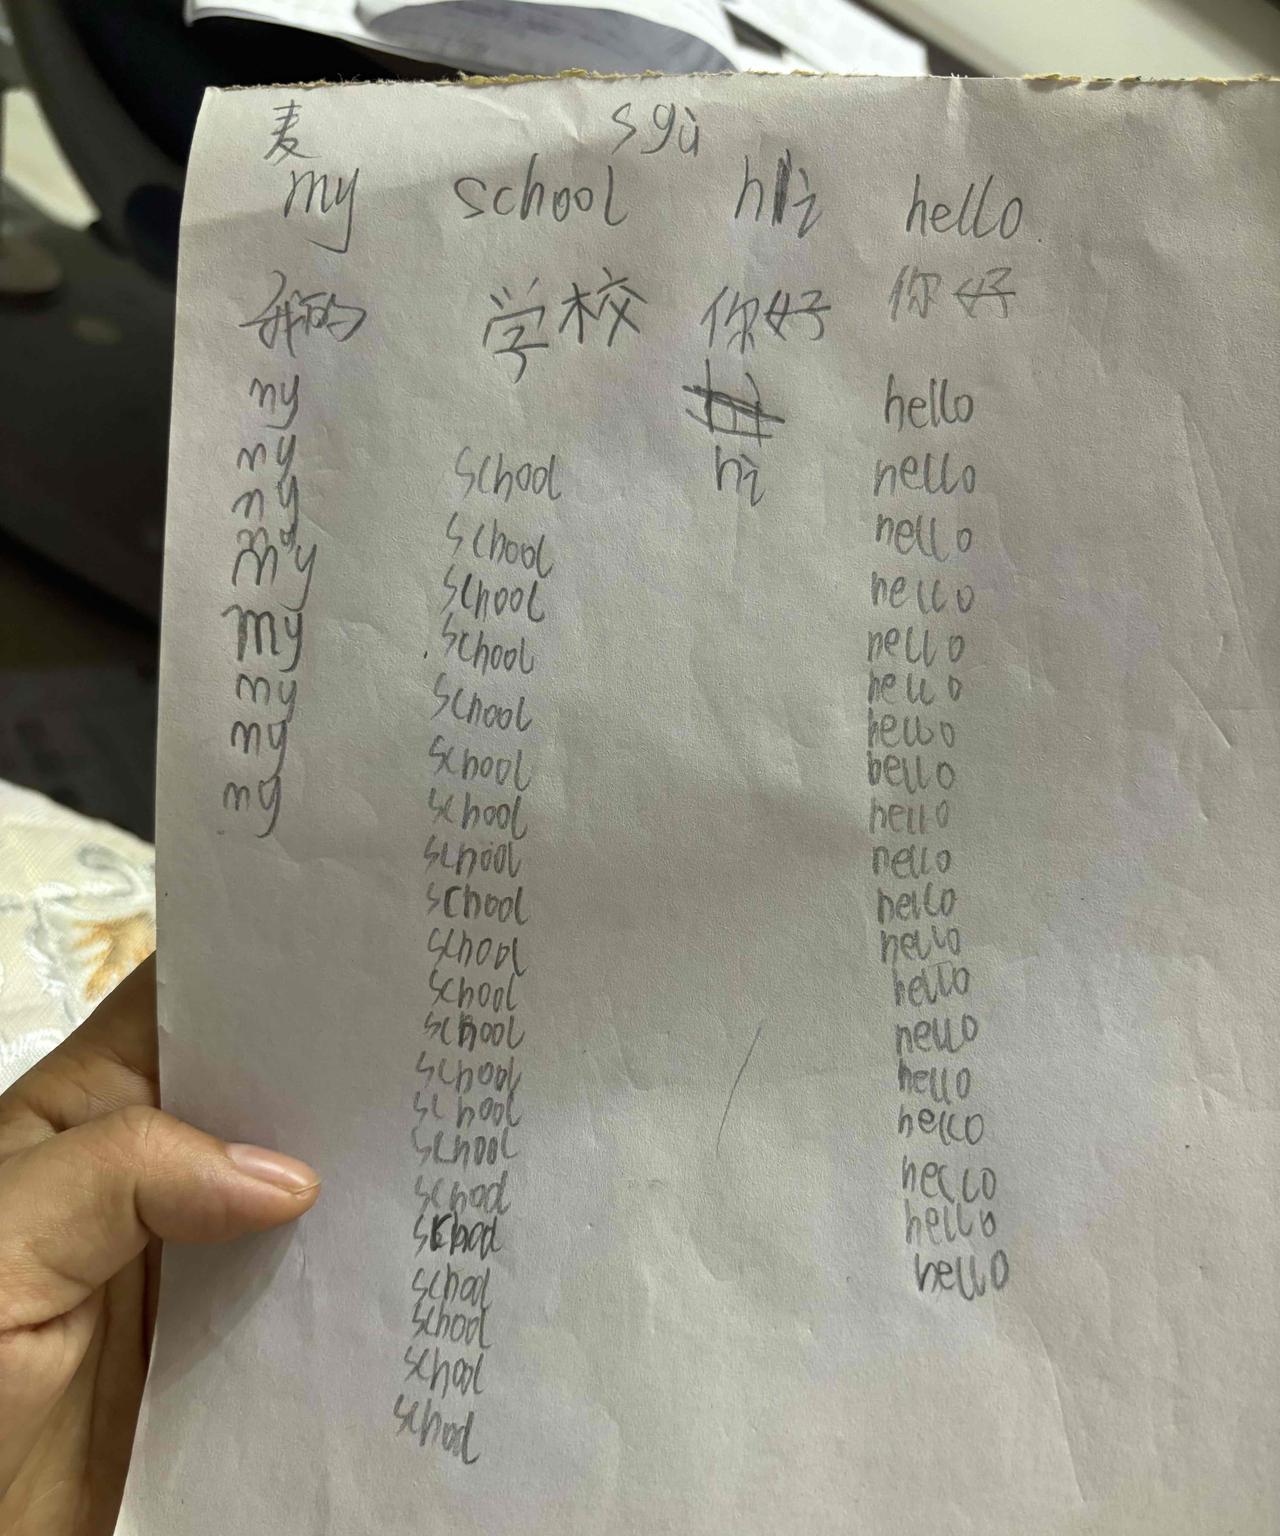 麦 sgù
my school hi hello
我的 学校 你好 你好
my
my
my
my
my
my
my
my
school
school
school
school
school
school
school
school
school
school
school
school
school
school
school
school
school
school
school
school
school
hi
hello
hello
hello
hello
hello
hello
hello
hello
hello
hello
hello
hello
hello
hello
hello
hello
hello
hello
hello